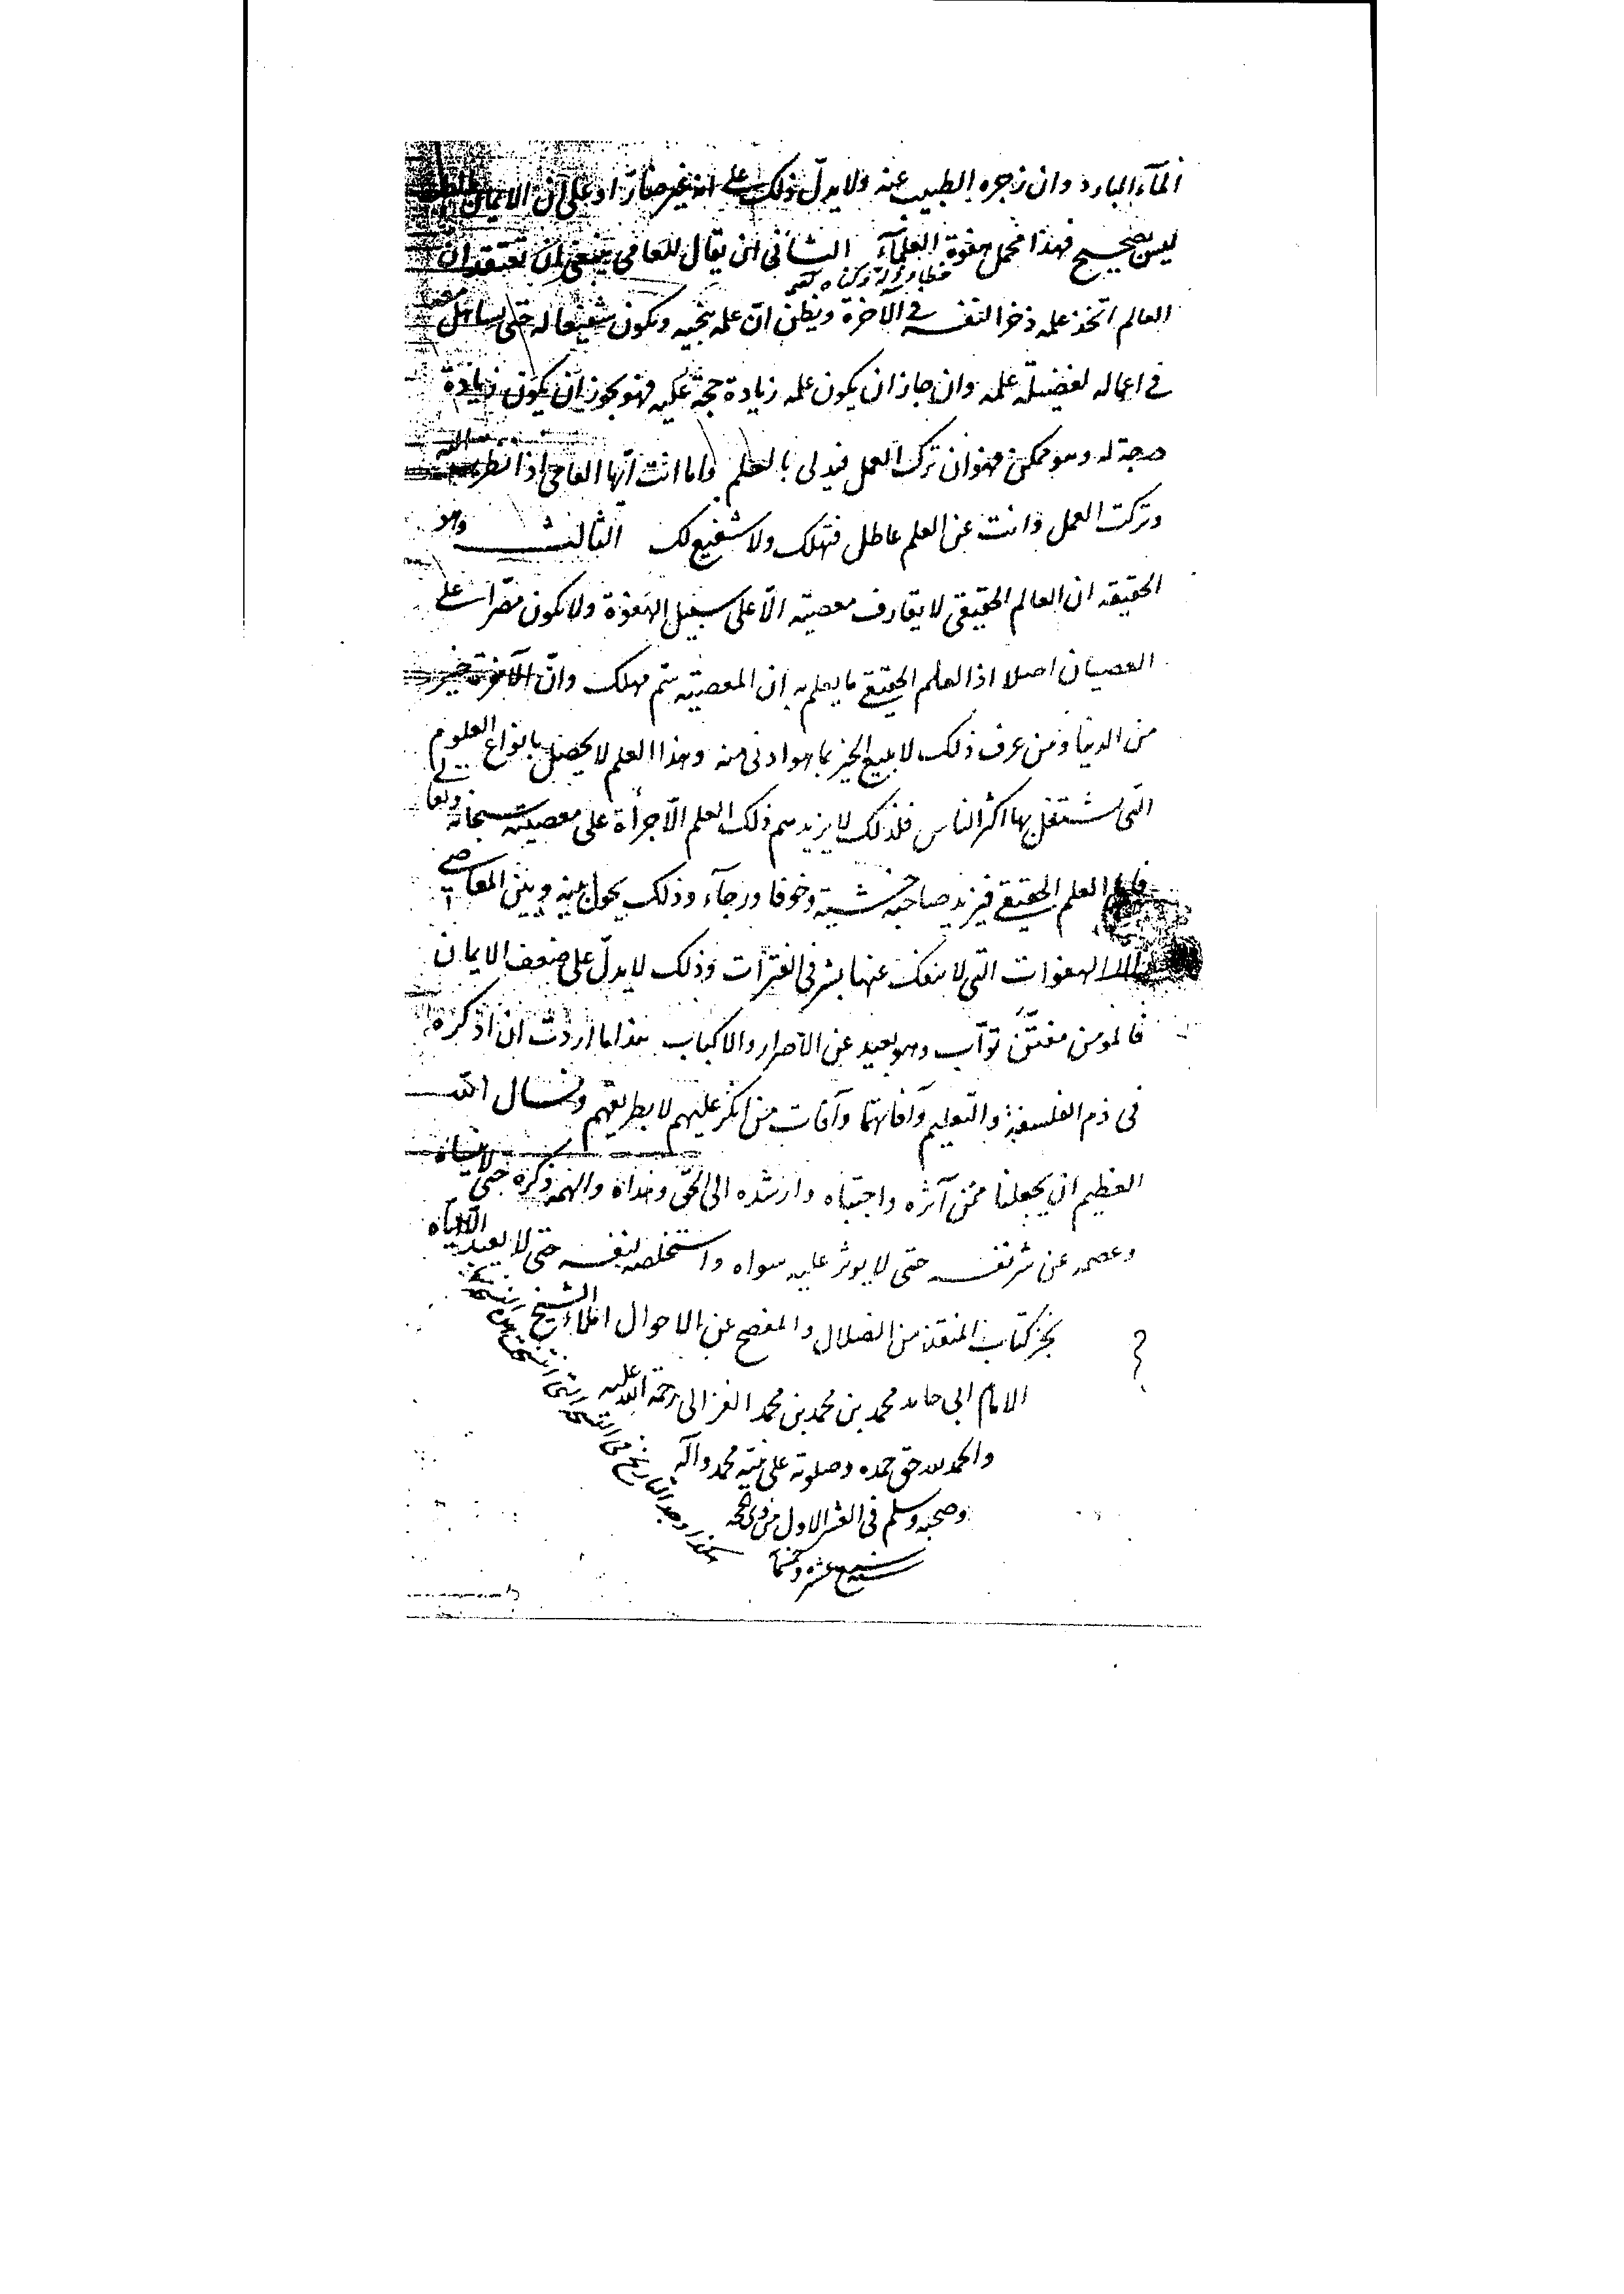 الماء البارد وان زجره الطبيب عنه ولا يدلّ ذلك على انه غير ضارّ او على ان الايمان بالطب
ليس بصحيح فهذا محمل هفوة العلمآء الثانى ان يقال للعامى ينبغى ان تعتقد ان
العالم اتخذ علمه ذخرا لنفسه فى الآخرة ويظن انّ علمه ينجيه ويكون شفيعا له حتى يساهل معه
فى اعماله لفضيلة علمه وان جاز ان يكون علمه زيادة حجة عليه فهو يجوز ان يكون زيادة
درجة له وهو ممكن فهو ان ترك العمل فيدلى بالعلم واما انت ايّها العامى اذا نظرت اليه
وتركت العمل وانت عن العلم عاطل فتهلك ولا شفيع لك الثالث وهو
الحقيقه ان العالم الحقيقى لا يقارف معصيته الّا على سبيل الهفوة ولا يكون مصرّا على
العصيان اصلا اذ العلم الحقيقى ما يعلم به ان المعصيته سم مهلك وانّ الآخرة خير
من الدنيا ومن عرف ذلك لا يبيع الخير بما هو ادنى منه وهذا العلم لا يحصل بانواع العلوم
التى يشتغل بها اكثر الناس فلذلك لا يزيدهم ذلك العلم الّا جرأة على معصيته سبحانه وتعالى
فاما العلم الحقيقى فيزيد صاحبه خشية وخوفا ورجآء وذلك يحول بينه وبين المعاصى
الّا الهفوات التى لا ينفك عنها بشر فى الفترات وذلك لا يدلّ على ضعف الايمان
فالمومن مفتّن توّاب وهو بعيد عن الاصرار والاكباب هذا ما اردت ان اذكره
فى ذم الفلسفة والتعليم وآفاتهما وآفات من انكر عليهم لا بطريقهم ونسال الله
العظيم ان يجعلنا ممّن آثره واجتباه وارشده الى الحق وهداه والهمه ذكره حتى لا ينساه
وعصمه عن شر نفسه حتى لا يوثر عليه سواه واستخلصه لنفسه حتى لا يعبد الّا اياه
نجز كتاب المنقذ من الضلال والمفصح عن الاحوال املاء الشيخ
الامام ابى حامد محمد بن محمد بن محمد الغزالى رحمة الله عليه
والحمد لله حق حمده وصلوته على نبيّه محمد وآله
وصحبه وسلم فى العشر الاول من ذى الحجه
سنه سبع عشره وخمسمآ